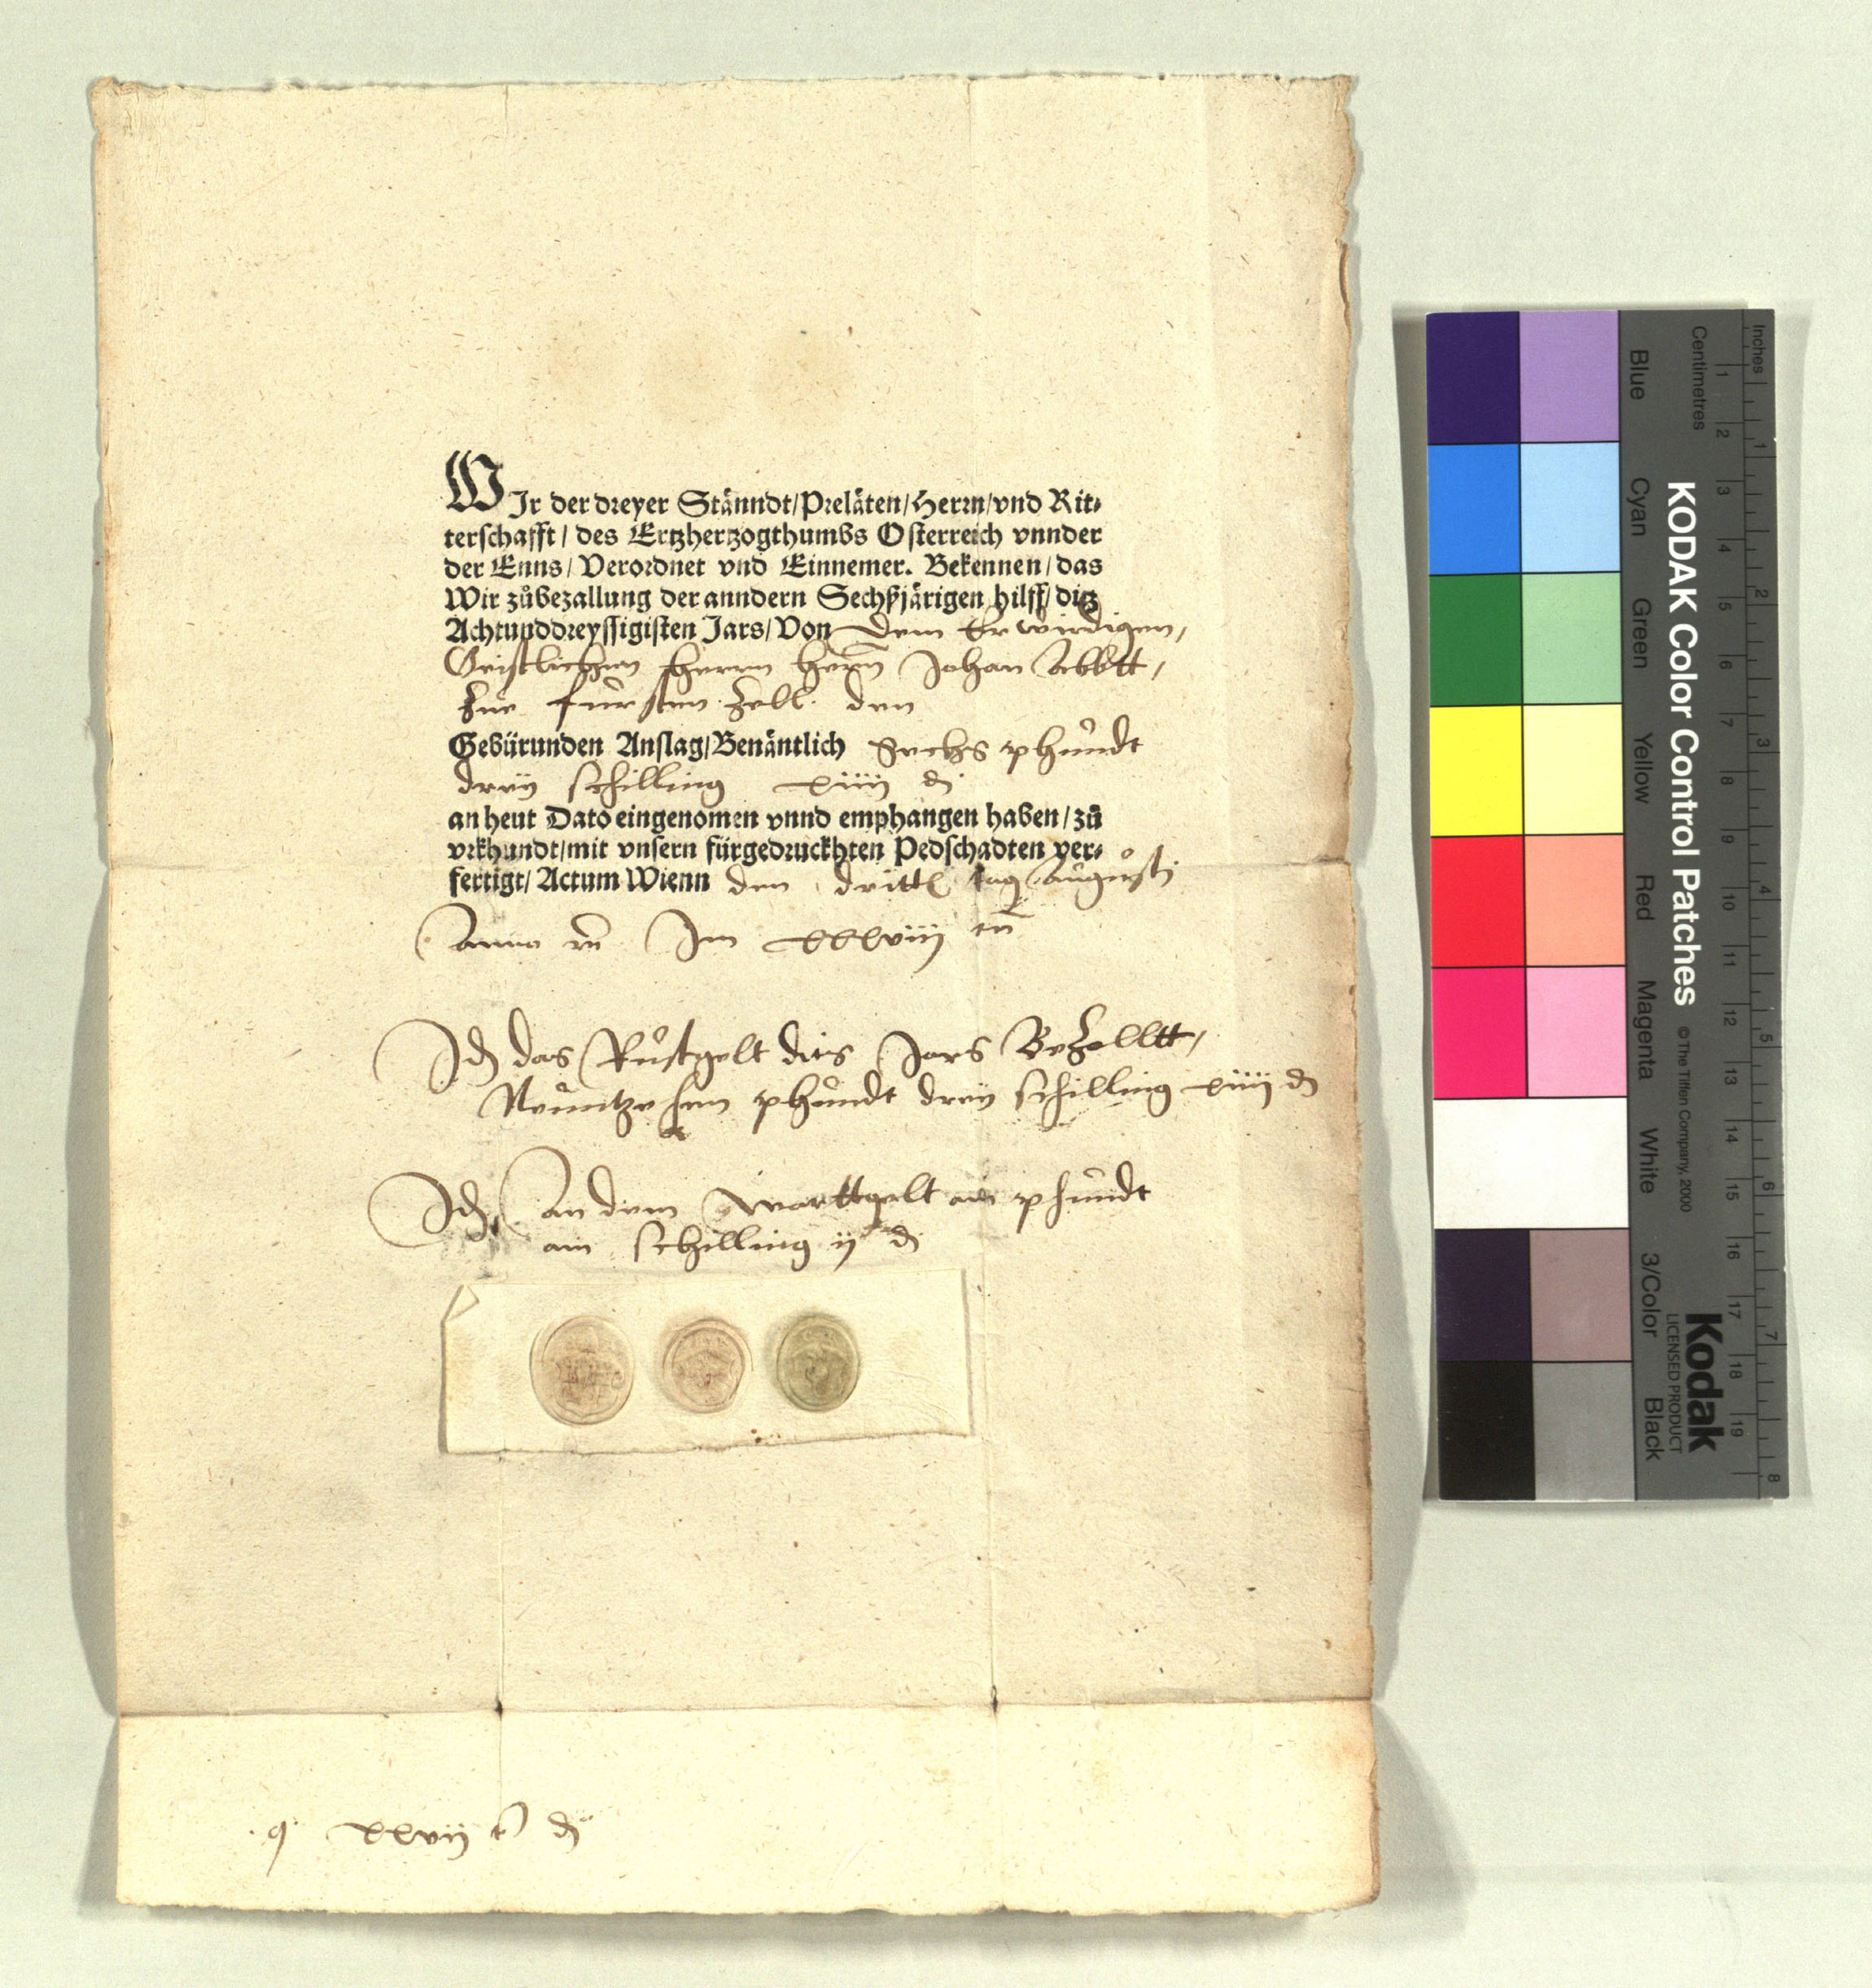 WIr der dreyer Stänndt/Preläten/Herrn/vnd Rit⸗
terschafft/ des Ertzhertzogthumbs Osterreich vnnder
der Enns/ Verordnet vnd Einnemer. Bekennen/das
Wir zůbezallung der anndern Sechßjärigen hilff/ ditz
Achtunddreyssigisten Jars/Von dem Erwirdigen,
Geistlichen herrn herrn Johan Abbtt,
Zue fürsten Zell den
Gebürunden Anslag/Benäntlich Sechs phundt
dreÿ schilling xiiij d
an heut Dato eingenomen vnnd emphangen haben/zů
vrkhundt/mit vnsern fürgedruckhten Pedschadten ver⸗
fertigt/ Actum Wienn den dritt tag Augusti
Anno Im xxxviij
Id das Rüstgelt dits Jars Bezalltt,
Neuntzehen phundt dreÿ schilling xiiij d
Id An dem warttgelt ain phundt
ain schilling ij d
xxvij d
KODAK Color Control Patches © The Tiffen Company, 2000
Kodak
LICENSED PRODUCT
Inches 1 2 3 4 5 6 7 8
Centimetres 1 2 3 4 5 6 7 8 9 10 11 12 13 14 15 16 17 18 19
Blue Cyan Green Yellow Red Magenta White 3/Color Black